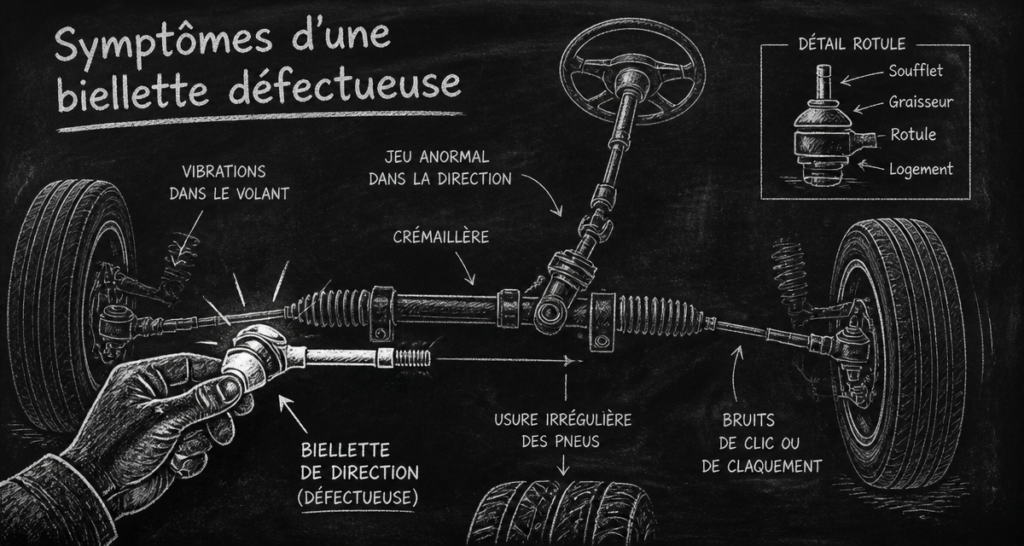 Symptômes d'une
biellette défectueuse
DÉTAIL ROTULE
Soufflet
Graisseur
Rotule
Logement
VIBRATIONS
DANS LE VOLANT
JEU ANORMAL
DANS LA DIRECTION
CRÉMAILLÈRE
BIELLETTE
DE DIRECTION
(DÉFECTUEUSE)
USURE IRRÉGULIÈRE
DES PNEUS
BRUITS
DE CLIC OU
DE CLAQUEMENT